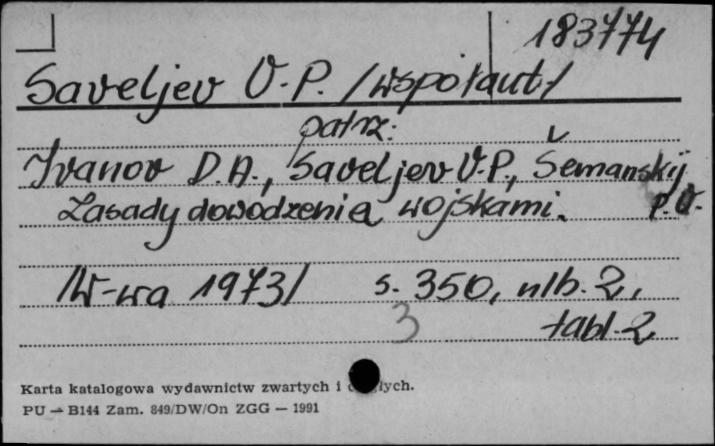 183774
Saveljev V.P. /współaut/
patrz:
Ivanov D.A., Saveljev V.P., Šemanskij
P.V.
Zasady dowodzenia wojskami.
/W-wa 1973/ s. 350, nlb. 2,
3 tabl. 2
Karta katalogowa wydawnictw zwartych i
PU — B144 Zam. 849/DW/On ZGG — 1991